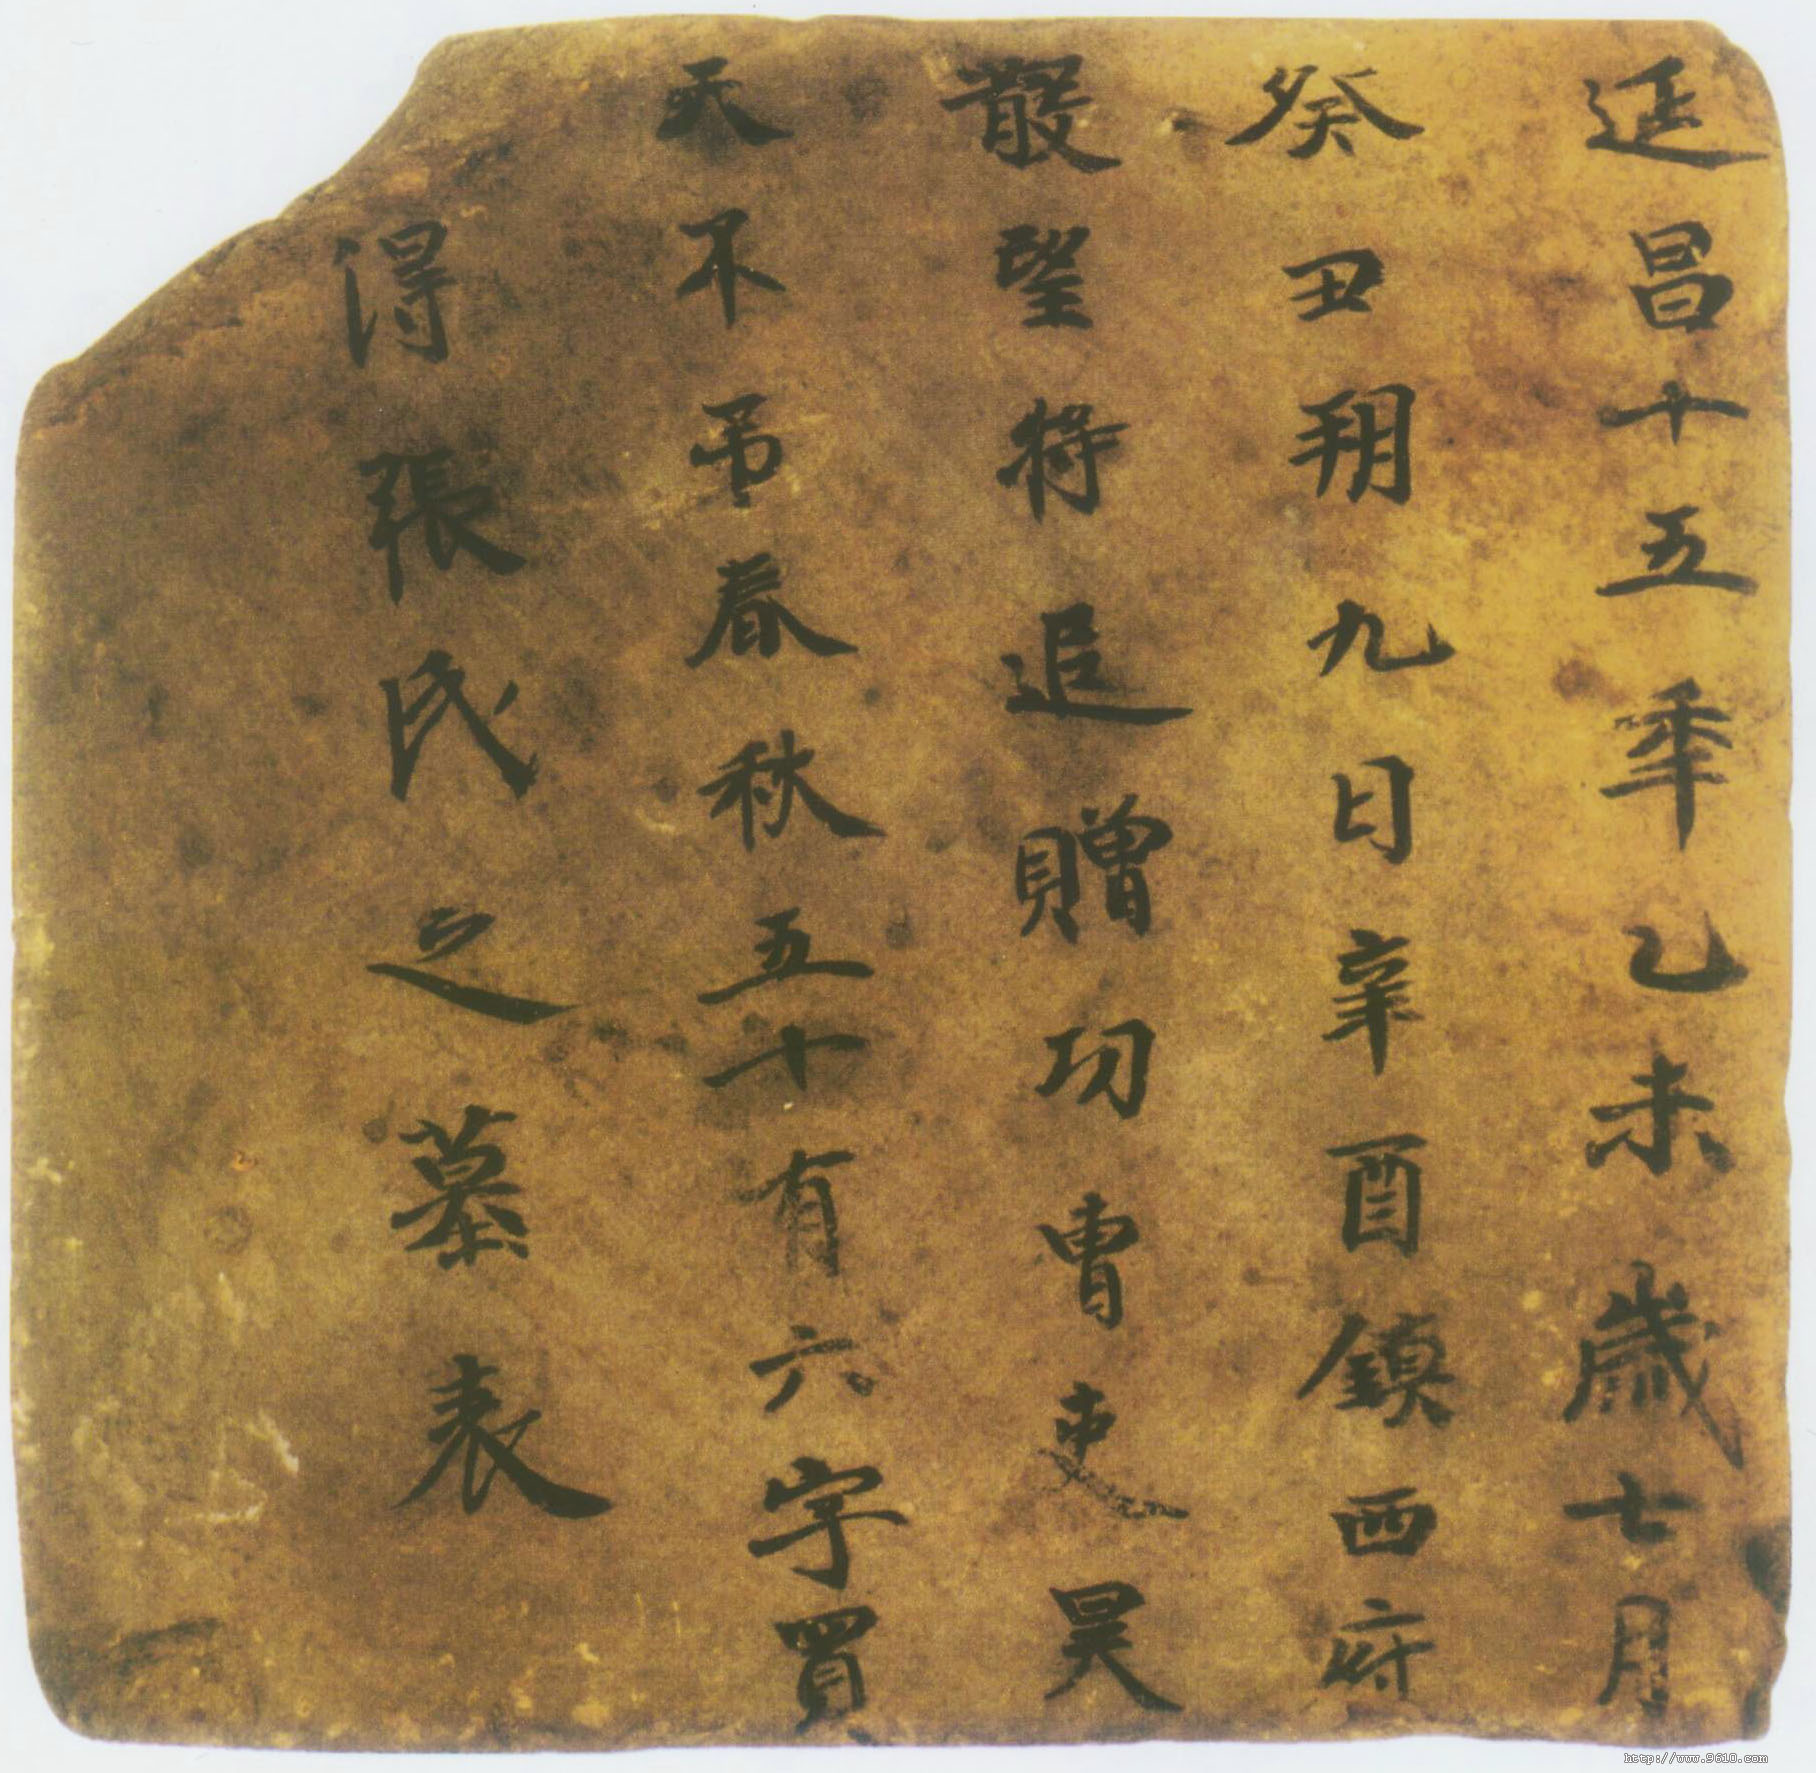 延昌十五年乙未歲七月
癸丑朔九日辛酉鎮西府
散望將追贈功曹吏昊
天不弔春秋五十有六字買
得張氏之墓表
http://www.9610.com